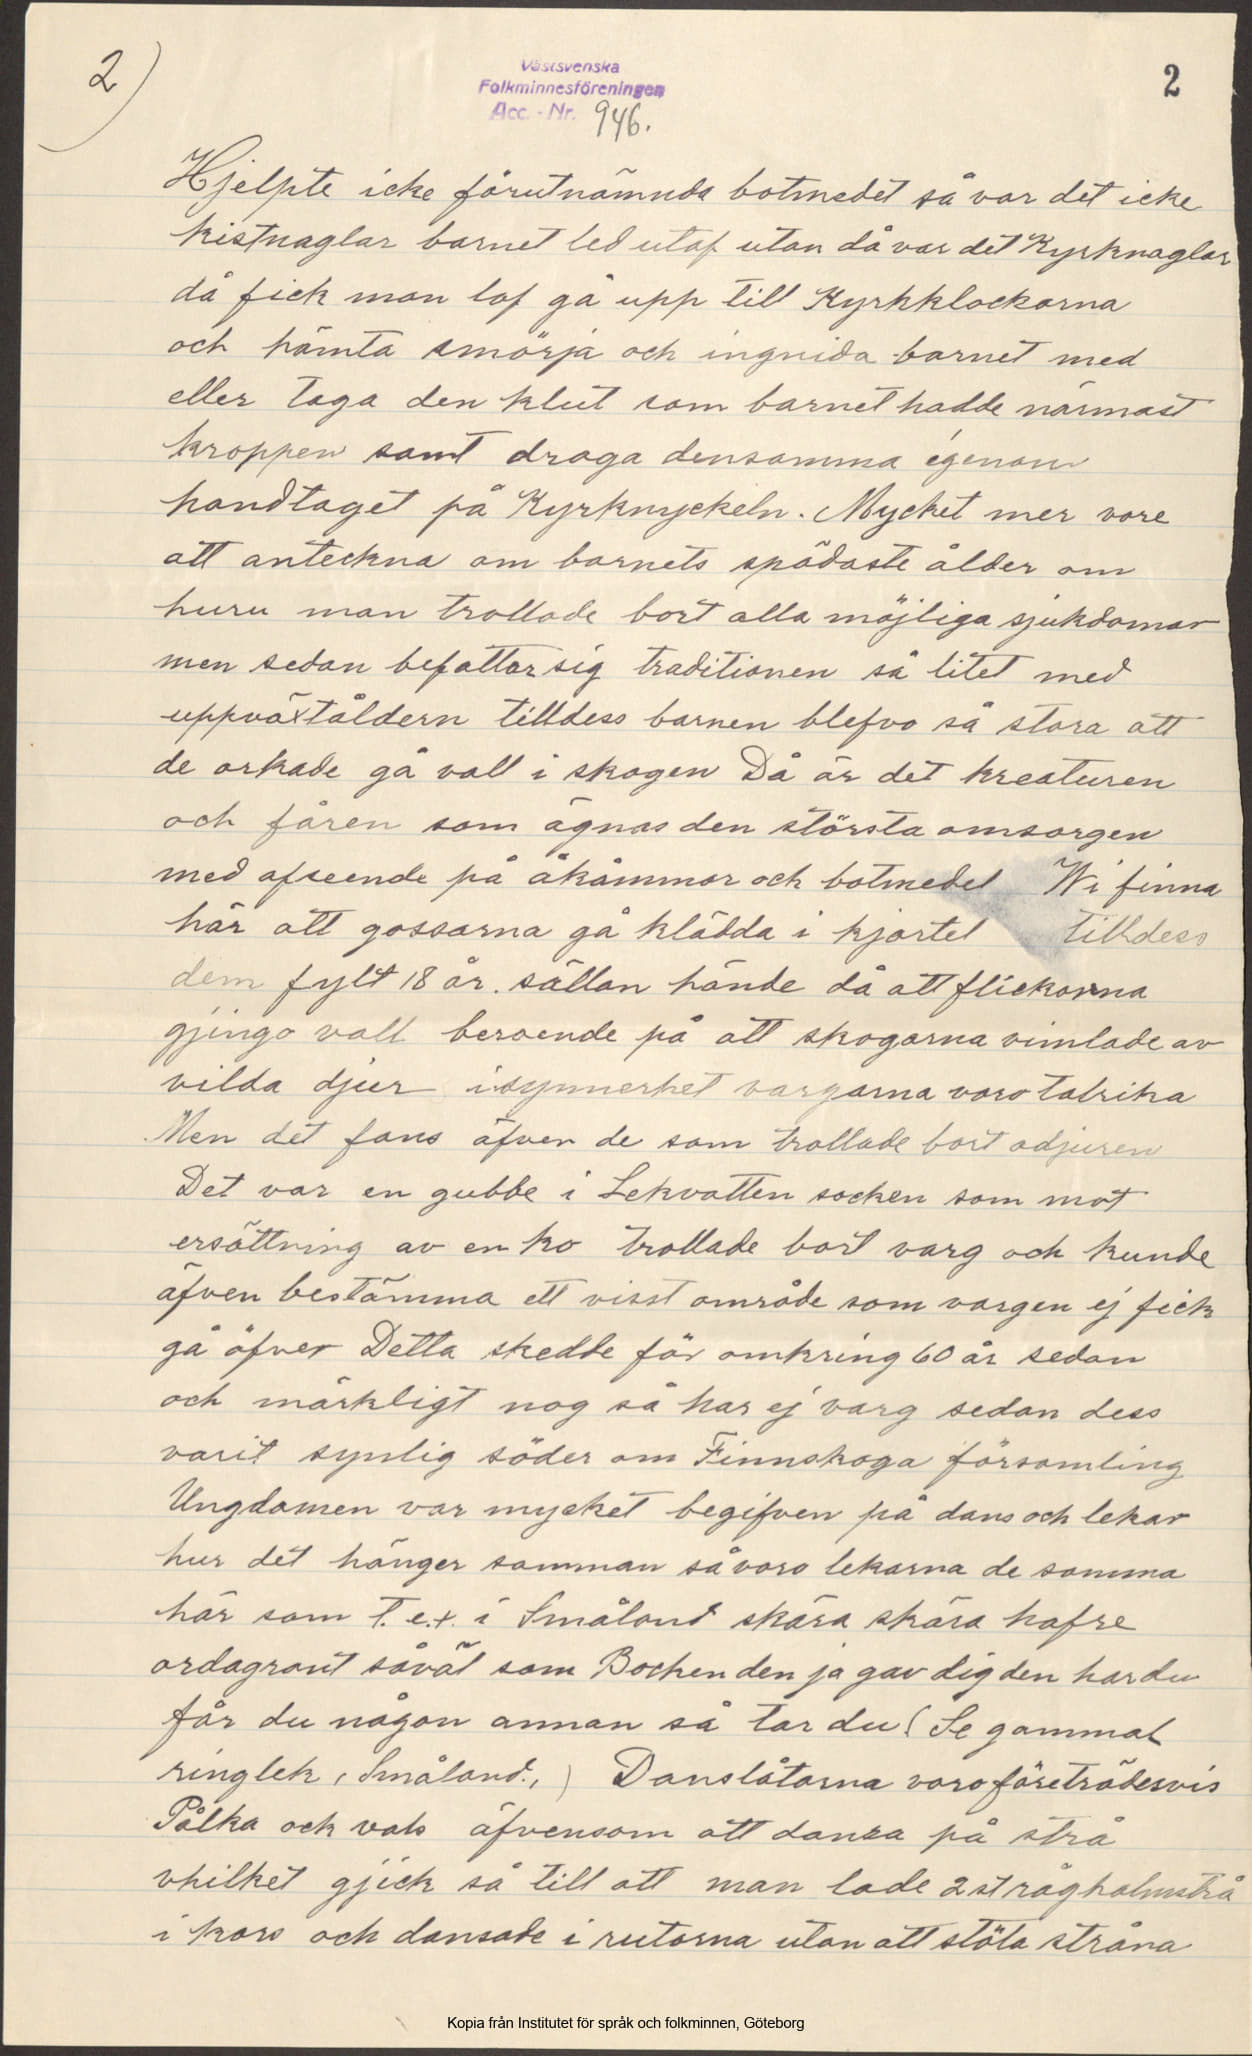 2)
Västsvenska
Folkminnesföreningen
Acc. - Nr. 946.
2
Hjelpte icke förutnämnda botmedet så var det icke
kistnaglar barnet led utaf utan då var det Kyrknaglar
då fick man lof gå upp till Kyrkklockorna
och hämta smörja och ingnida barnet med
eller taga den klut som barnet hadde närmast
kroppen samt draga densamma egenom
handtaget på Kyrknyckeln. Mycket mer vore
att anteckna om barnets spädaste ålder om
huru man trollade bort alla möjliga sjukdomar
men sedan befattar sig traditionen så litet med
uppväxtåldern tilldess barnen blefvo så stora att
de orkade gå vall i skogen Då är det kreaturen
och fåren som ägnas den största omsorgen
med afseende på åkåmmor och botmedel Wi finna
här att gossarna gå klädda i kjortel tilldess
dem fylt 18 år. sällan hände då att flickorna
gjingo vall beroende på att skogarna vimlade av
vilda djur isynnerhet vargarna voro talrika
Men det fans äfven de som trollade bort odjuren
Det var en gubbe i Lekvatten socken som mot
ersättning av en ko trollade bort varg och kunde
äfven bestämma ett visst område som vargen ej fick
gå öfver Detta skedde för omkring 60 år sedan
och märkligt nog så har ej varg sedan dess
varit synlig söder om Finnskoga församling
Ungdomen var mycket begifven på dans och lekar
hur det hänger samman så voro lekarna de samma
här som t.ex. i Småland skära skära hafre
ordagrant såväl som Bocken den ja gav dig den har du
får du någon annan så tar du (Se gammal
ringlek, Småland.,) Danslåtarna voro företrädesvis
Pålka ock vals äfvensom att dansa på strå
vhilket gjick så till att man lade 2 st råghalmstrå
i kors och dansade i rutorna utan att stöta stråna
Kopia från Institutet för språk och folkminnen, Göteborg